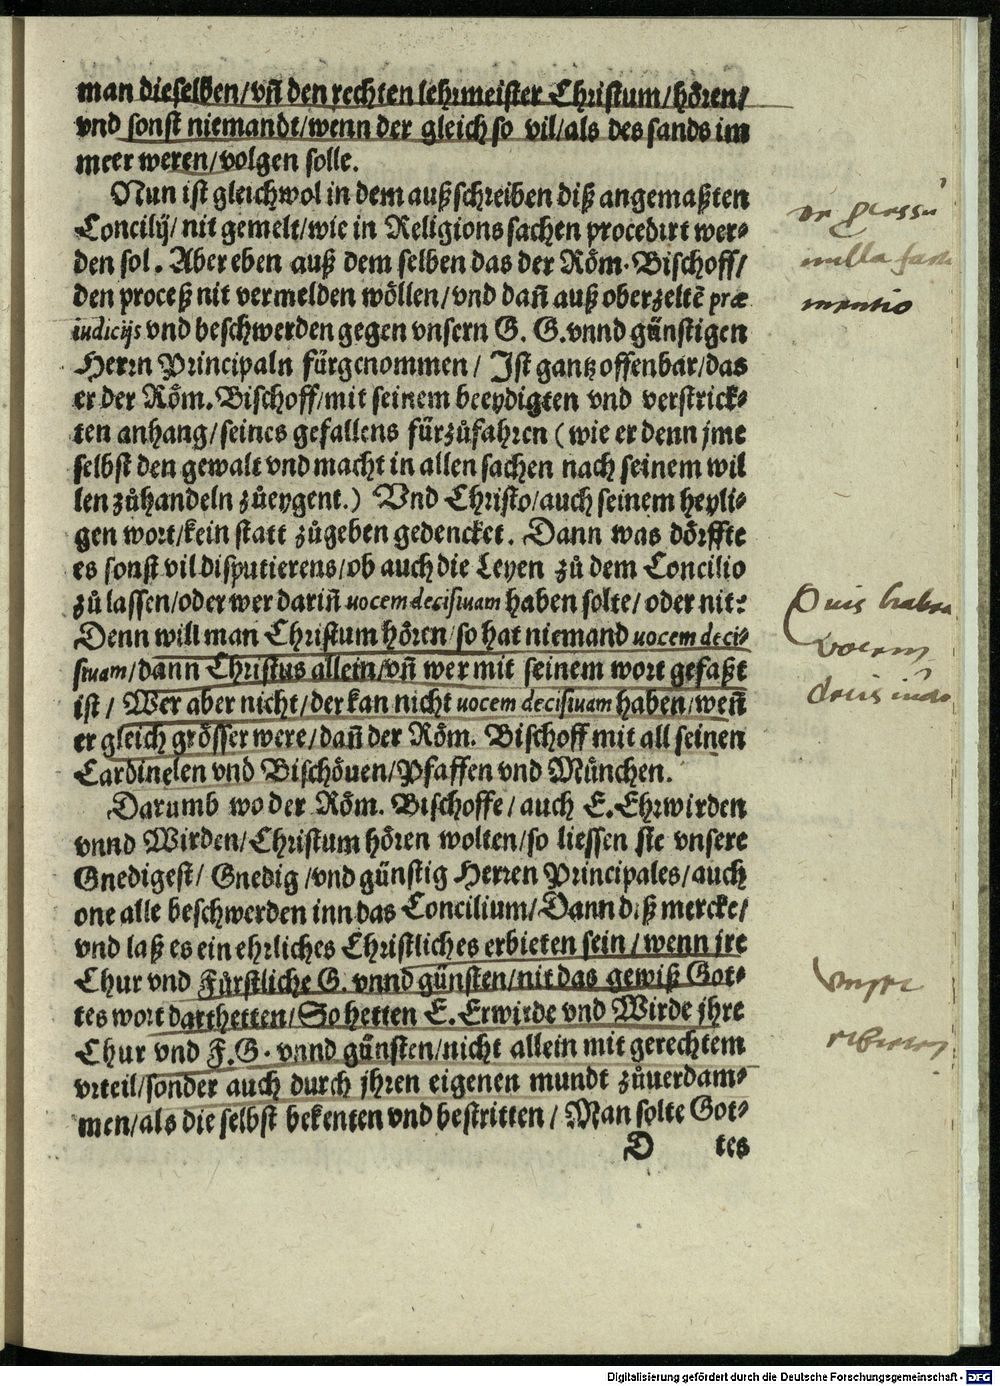 man dieselben/vñ den rechten lehrmeister Christum/hören/
vnd sonst niemandt/wenn der gleich so vil/als des sands im
meer weren/volgen solle.
Nun ist gleichwol in dem außschreiben diß angemaßten
Concilij/ nit gemelt/wie in Religions sachen procedirt wer⸗
den sol. Aber eben auß dem selben das der Röm. Bischoff/
den proceß nit vermelden wöllen/vnd dañ auß oberzeltē præ
iudicijs vnd beschwerden gegen vnsern G. G. vnnd günstigen
Herrn Principaln fürgenommen/ Ist gantz offenbar/das
er der Röm. Bischoff/mit seinem beeydigten vnd verstrick⸗
ten anhang/seines gefallens fürzůfahren (wie er denn jme
selbst den gewalt vnd macht in allen sachen nach seinem wil
len zůhandeln zůeygent.) Vnd Christo/auch seinem heyli⸗
gen wort/kein statt zůgeben gedencket. Dann was dörffte
es sonst vil disputierens/ob auch die Leyen zů dem Concilio
zů lassen/oder wer dariñ uocem decisiuam haben solte/ oder nit?
Denn will man Christum hören/so hat niemand uocem deci⸗
siuam/dann Christus allein/vñ wer mit seinem wort gefaßt
ist/ Wer aber nicht/der kan nicht uocem decisiuam haben/weñ
er gleich grösser were/dañ der Röm. Bischoff mit all seinen
Cardinelen vnd Bischöuen/Pfaffen vnd München.
Darumb wo der Röm. Bischoffe/auch E. Ehrwirden
vnnd Wirden/Christum hören wolten/so liessen sie vnsere
Gnedigest/ Gnedig/vnd günstig Herren Principales/auch
one alle beschwerden inn das Concilium/Dann diß mercke/
vnd laß es ein ehrliches Christliches erbieten sein/wenn jre
Chur vnd Fürstliche G. vnnd günsten/nit das gewiß Got⸗
tes wort darthetten/So hetten E. Erwirde vnd Wirde jhre
Chur vnd F. G. vnnd günsten/nicht allein mit gerechtem
vrteil/sonder auch durch jhren eigenen mundt zůuerdam⸗
men/als die selbst bekenten vnd bestritten/ Man solte Got⸗
D tes
nulla
mentio
Quis
vocem
Digitalisierung gefördert durch die Deutsche Forschungsgemeinschaft - DFG